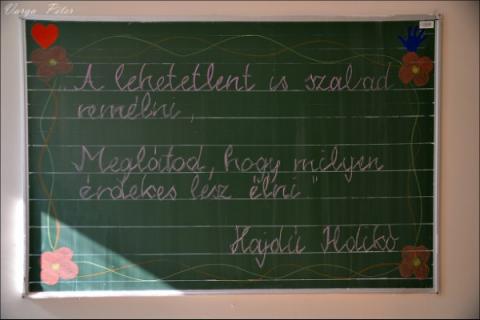 Varga Péter
„A lehetetlent is szabad
remélni,
Meglátod, hogy milyen
érdekes lesz élni"
Hajdú Ildikó